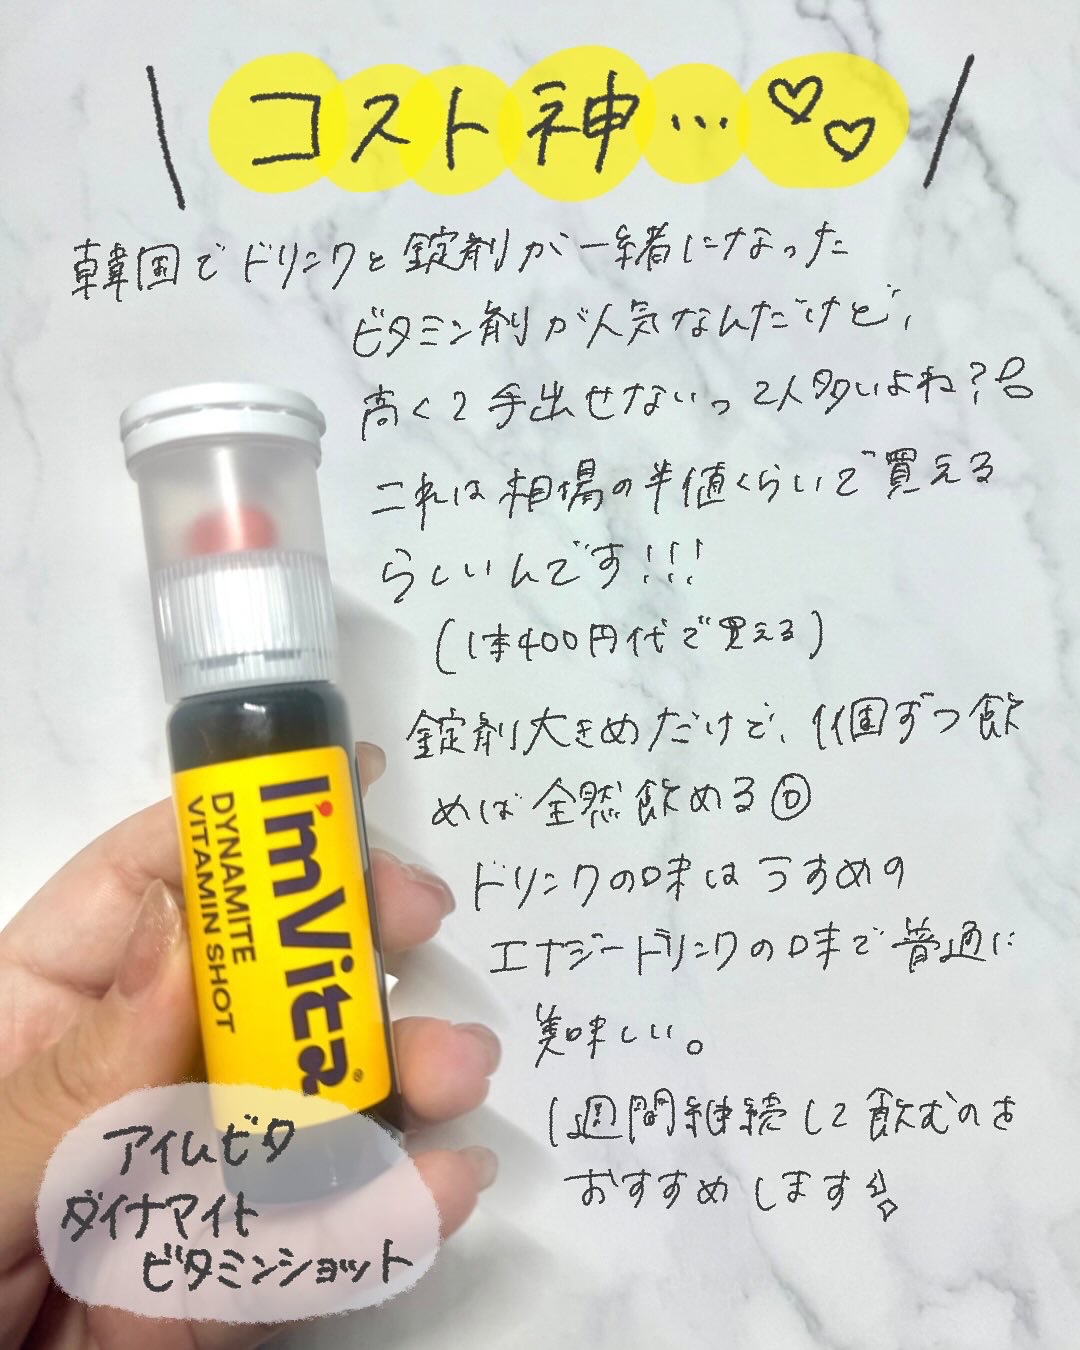 \ コスト神…♡♡ /
韓国でドリンクと錠剤が一緒になった
ビタミン剤が人気なんだけど、
高くて手出せないって人多いよね?
これは相場の半値くらいで買える
らしいんです!!!
(1本400円代で買える)
錠剤大きめだけど、1個ずつ飲
めば全然飲める
ドリンクの味はうすめの
エナジードリンクの味で普通に
美味しい。
1週間継続して飲むのを
おすすめします
I'mVita®
DYNAMITE
VITAMIN SHOT
アイムビタ
ダイナマイト
ビタミンショット